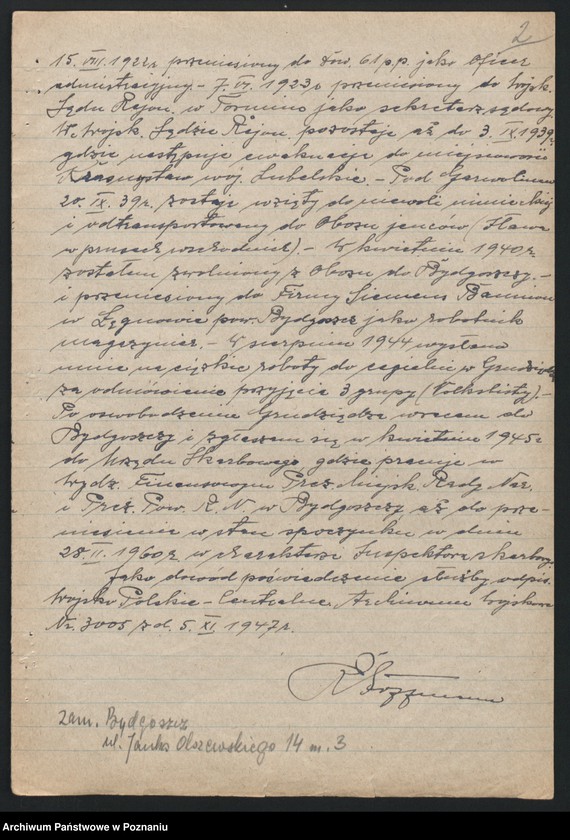 2
15. VIII. 1922r przeniesiony do dow. 61 p.p. jako oficer
administracyjny. - 7. VI. 1923r przeniesiony do Wojsk.
Sądu Rejon. w Toruniu jako sekretarz sądowy.
W Wojsk. Sądzie Rejon. pozostaje aż do 3. IX. 1939r.
gdzie następuje ewakuacja do miejscowości
Krasnystaw woj. Lubelskie. - Pod Garwolinem
20. IX. 39r. zostaję wzięty do niewoli niemieckiej
i odtransportowany do Obozu jeńców (Iława
w prusach wschodnich). - W kwietniu 1940 r.
zostałem zwolniony z Obozu do Bydgoszczy. -
i przeniesiony do Firmy Siemens
w Łęgnowie pow. Bydgoszcz jako robotnik
magazynier. - W sierpniu 1944 wysłano
mnie na ciężkie roboty do cegielni w Grudziądzu
za odmówienie przyjęcia 3 grupy (Volkslisty). -
Po oswobodzeniu Grudziądza wracam do
Bydgoszczy i zgłaszam się w kwietniu 1945r
do Urzędu Skarbowego, gdzie pracuję w
Wydz. Finansowym Prez. Miejsk. Rady Nar.
i Prez. Pow. R. N. w Bydgoszczy aż do prze-
niesienia w stan spoczynku w dniu
28. II. 1960 r. w charakterze Inspektora skarbow.
Jako dowód poświadczenie służby odpis.
Wojsko Polskie - Centralne Archiwum Wojskowe
Nr. 3005 z d. 5. XI. 1947 r.
zam. Bydgoszcz
ul. Janka Olszewskiego 14 m. 3
Archiwum Państwowe w Poznaniu